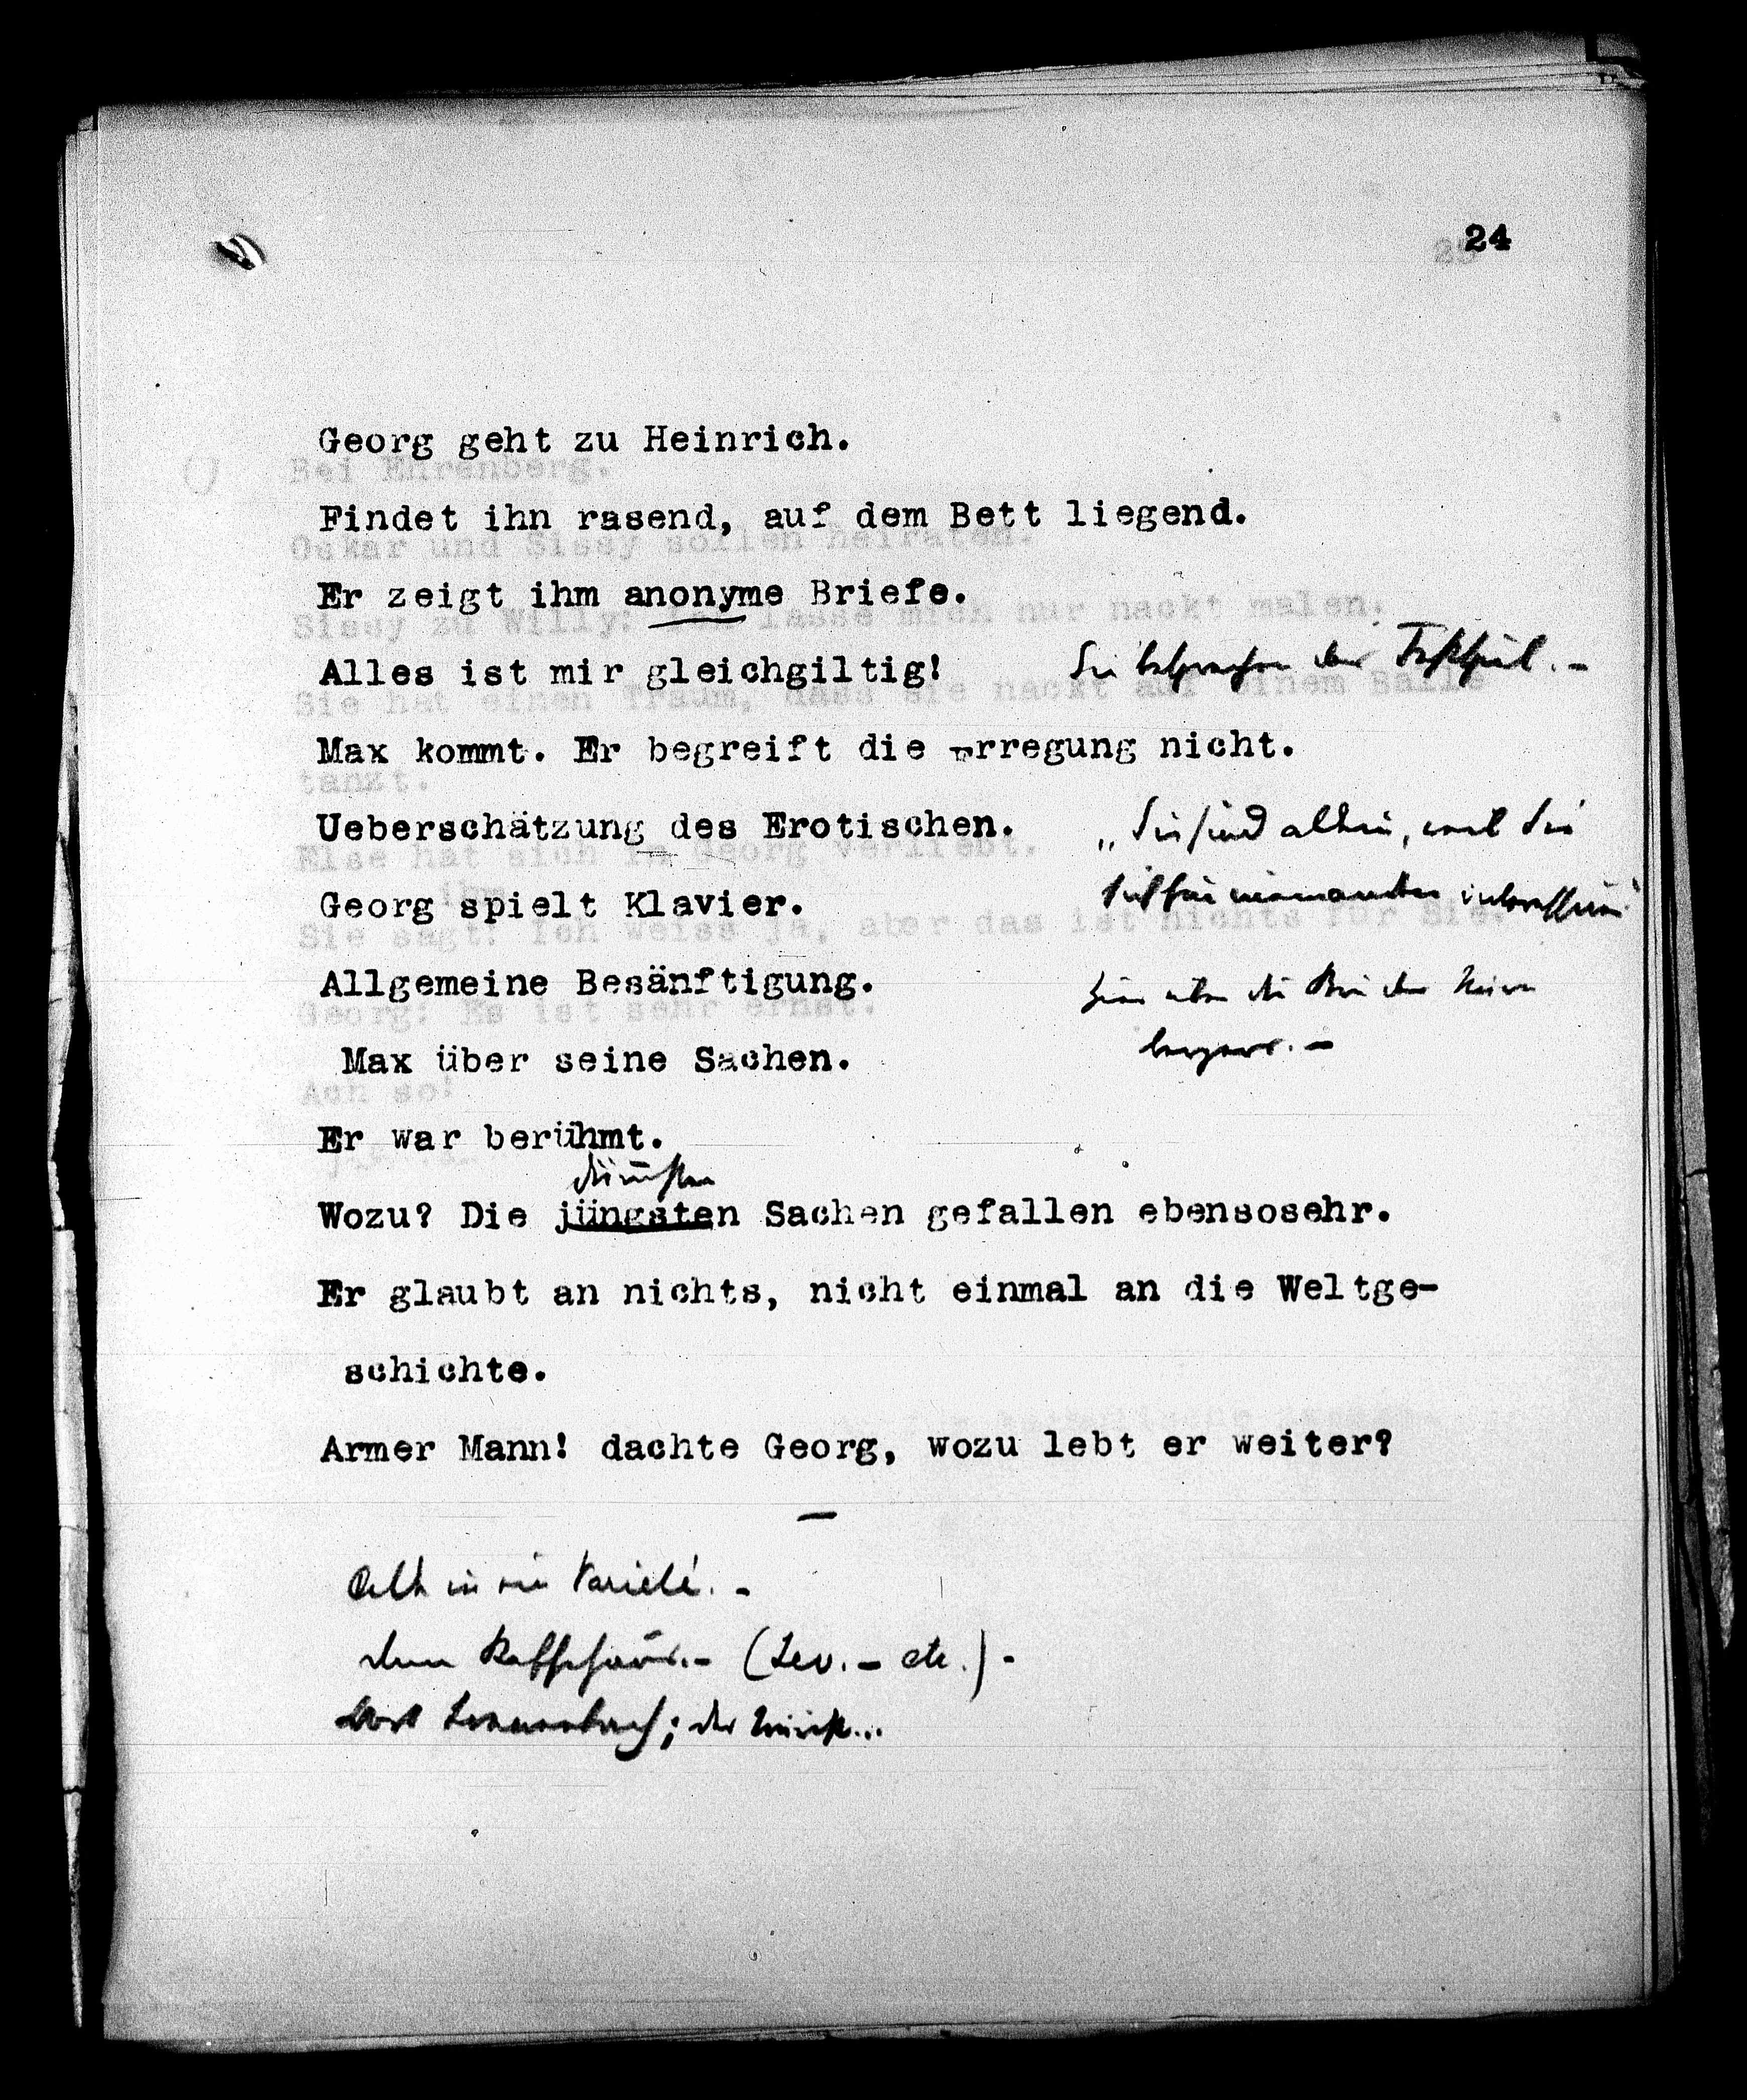 24
Georg geht zu Heinrich.
Findet ihn rasend, auf dem Bett liegend.
Er zeigt ihm anonyme Briefe.
Alles ist mir gleichgiltig! Sie besprechen das Festspiel. –
Max kommt. Er begreift die Erregung nicht.
Ueberschätzung des Erotischen. „Sie sind allein, weil Sie
Georg spielt Klavier. sich für niemanden
Allgemeine Besänftigung.
Max über seine Sachen.
Er war berühmt.
Wozu? Die jüngsten Sachen gefallen ebensosehr.
Er glaubt an nichts, nicht einmal an die Weltge-
schichte.
Armer Mann! dachte Georg, wozu lebt er weiter?
–
Alle in ein Varieté. –
dann Kaffeehaus. – (Leo. – etc.) –